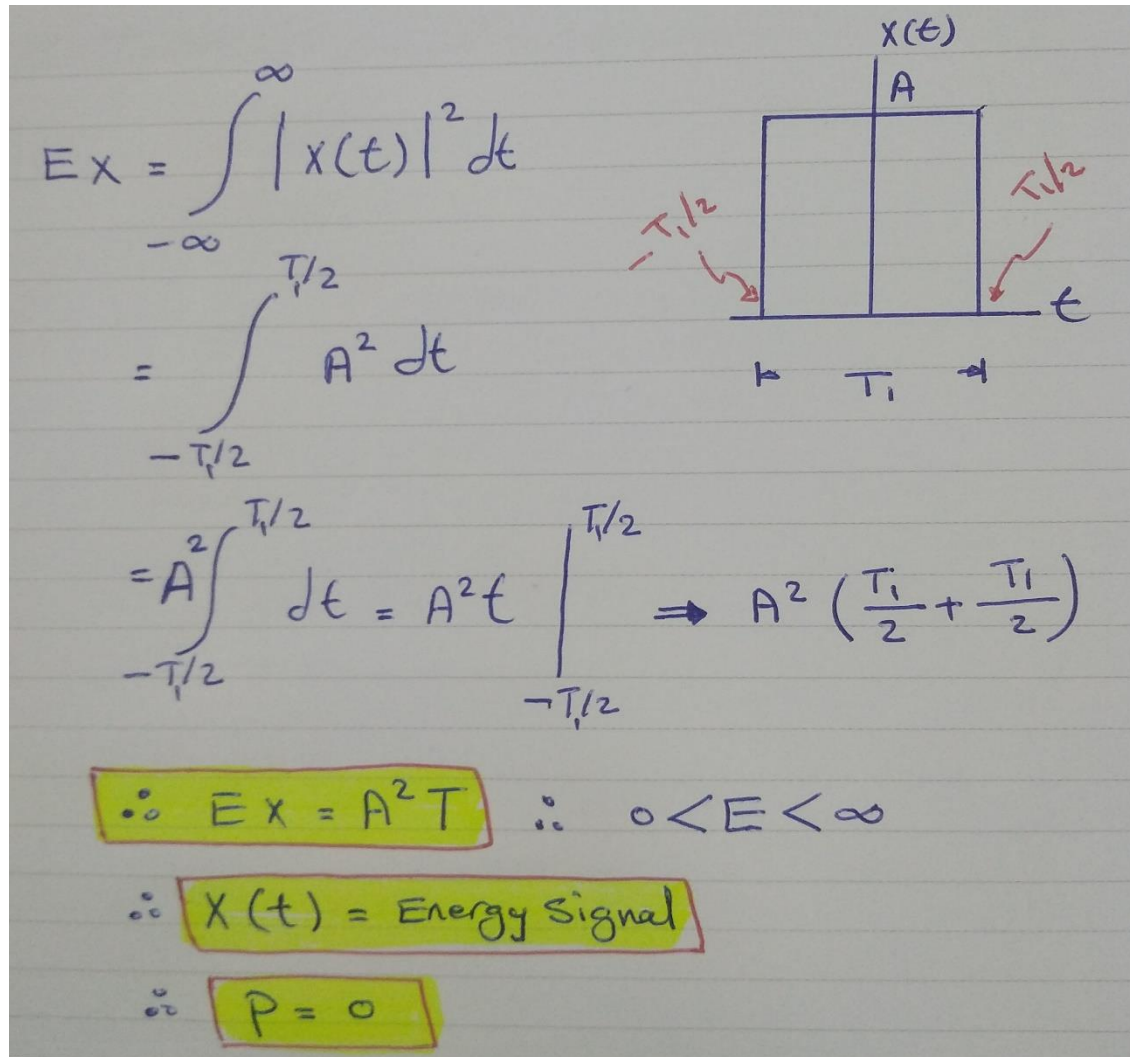 Ex = ∫_{-∞}^{∞} |x(t)|² dt
x(t)
A
-T₁/2
T₁/2
t
T₁
= ∫_{-T₁/2}^{T₁/2} A² dt
= A² ∫_{-T₁/2}^{T₁/2} dt = A²t |_{-T₁/2}^{T₁/2} ⇒ A² (T₁/2 + T₁/2)
∴ Ex = A²T ∴ 0<E<∞
∴ X(t) = Energy Signal
∴ P = 0